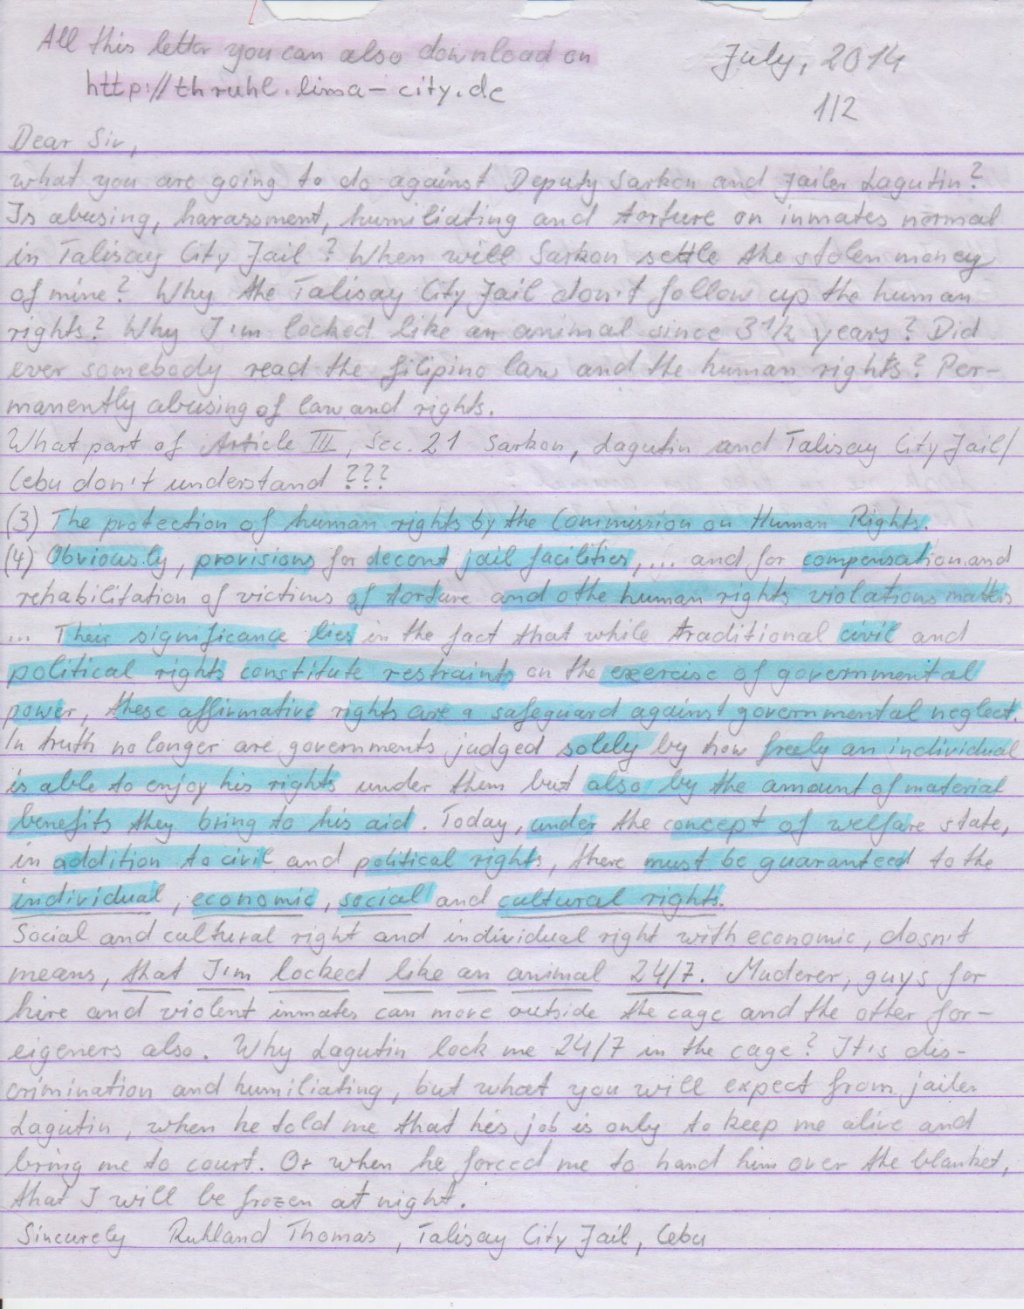 All this letter you can also download on
July, 2014
http://thruhl.lima-city.de
1/2
Dear Sir,
what you are going to do against Deputy Sarkon and Jailer Lagutin?
Is abusing, harassment, humiliating and torture on inmates normal
in Talisay City Jail? When will Sarkon settle the stolen money
of mine? Why the Talisay City Jail don't follow up the human
rights? Why I'm locked like an animal since 3 1/2 years? Did
ever somebody read the filipino law and the human rights? Per-
manently abusing of law and rights.
What part of Article III, Sec. 21 Sarkon, Lagutin and Talisay City Jail/
Cebu don't understand ???
(3) The protection of human rights by the Commission on Human Rights.
(4) Obviously, provisions for decent jail facilities, ... and for compensation and
rehabilitation of victims of torture and othe human rights violations matters
... Their significance lies in the fact that while traditional civil and
political rights constitute restraints on the exercise of governmental
power, these affirmative rights are a safeguard against governmental neglect.
In truth no longer are governments judged solely by how freely an individual
is able to enjoy his rights under them but also by the amount of material
benefits they bring to his aid. Today, under the concept of welfare state,
in addition to civil and political rights, there must be guaranteed to the
individual, economic, social and cultural rights.
Social and cultural right and individual right with economic, dosn't
means, that I'm locked like an animal 24/7. Muderer, guys for
hire and violent inmates can move outside the cage and the other for-
eigeners also. Why Lagutin lock me 24/7 in the cage? It's dis-
crimination and humiliating, but what you will expect from jailer
Lagutin, when he told me that his job is only to keep me alive and
bring me to court. Or when he forced me to hand him over the blanket,
that I will be frozen at night.
Sincurely Ruhland Thomas, Talisay City Jail, Cebu